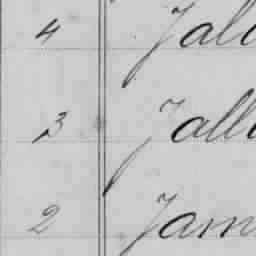 4 Jall
3 Jall
2 Jam